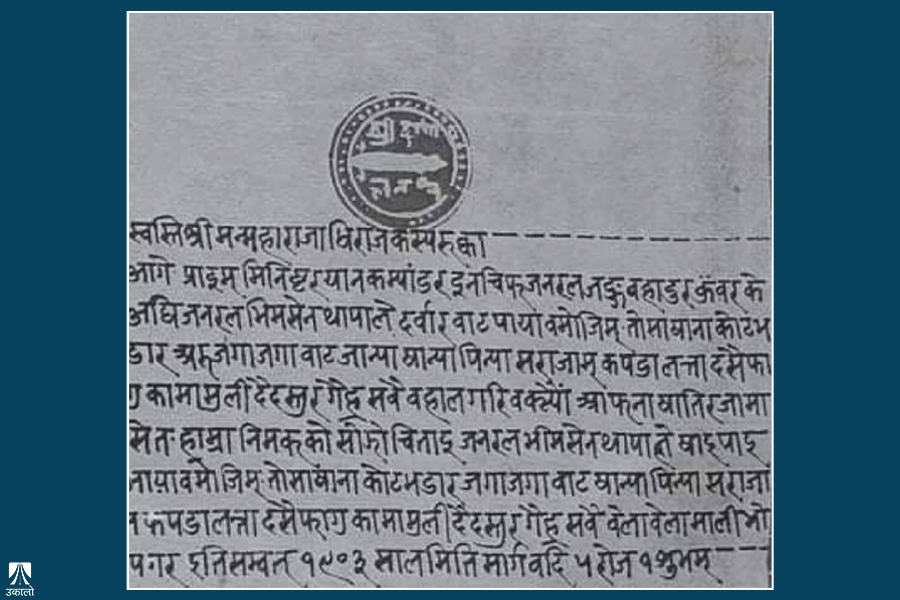 श्री दुर्गा
स्वस्तिश्रीमन्महाराजाधिराजकस्यरुक्का
आगे प्राइम् मिनिष्टर यान कम्यांडर इनचिफ् जनरल जङ्गबहादुर कंवर के
अघि जनरल भिमसेन थापाले दर्वारबाट पायांवमोजिम् तोसाषाना कोटभ
डार अरु जगाजगावाट जान्या षान्या पिन्या सराजाम् कपडा लत्ता दसैफा
गु का मामुली दैदस्तुर गैह्र सवै वहाल गरिवक्स्यौं आफना षातिर्जामा
सित हाम्रा निमकको सोझो चिताइ जनरल भीमसेन थापाले षाइपाइ
आयावमोजिम् तोसाषाना कोटभडार जगाजगावाट षान्या पिन्या सराजा
म् कपडा लत्ता दसैफागु का मामुली दैदस्तुर गैह्र सवै वेलावेलामा लि भो
प गर इति सम्वत् १९०३ साल मिति मार्ग वदि ५ रोज १ शुभम्
उकालो